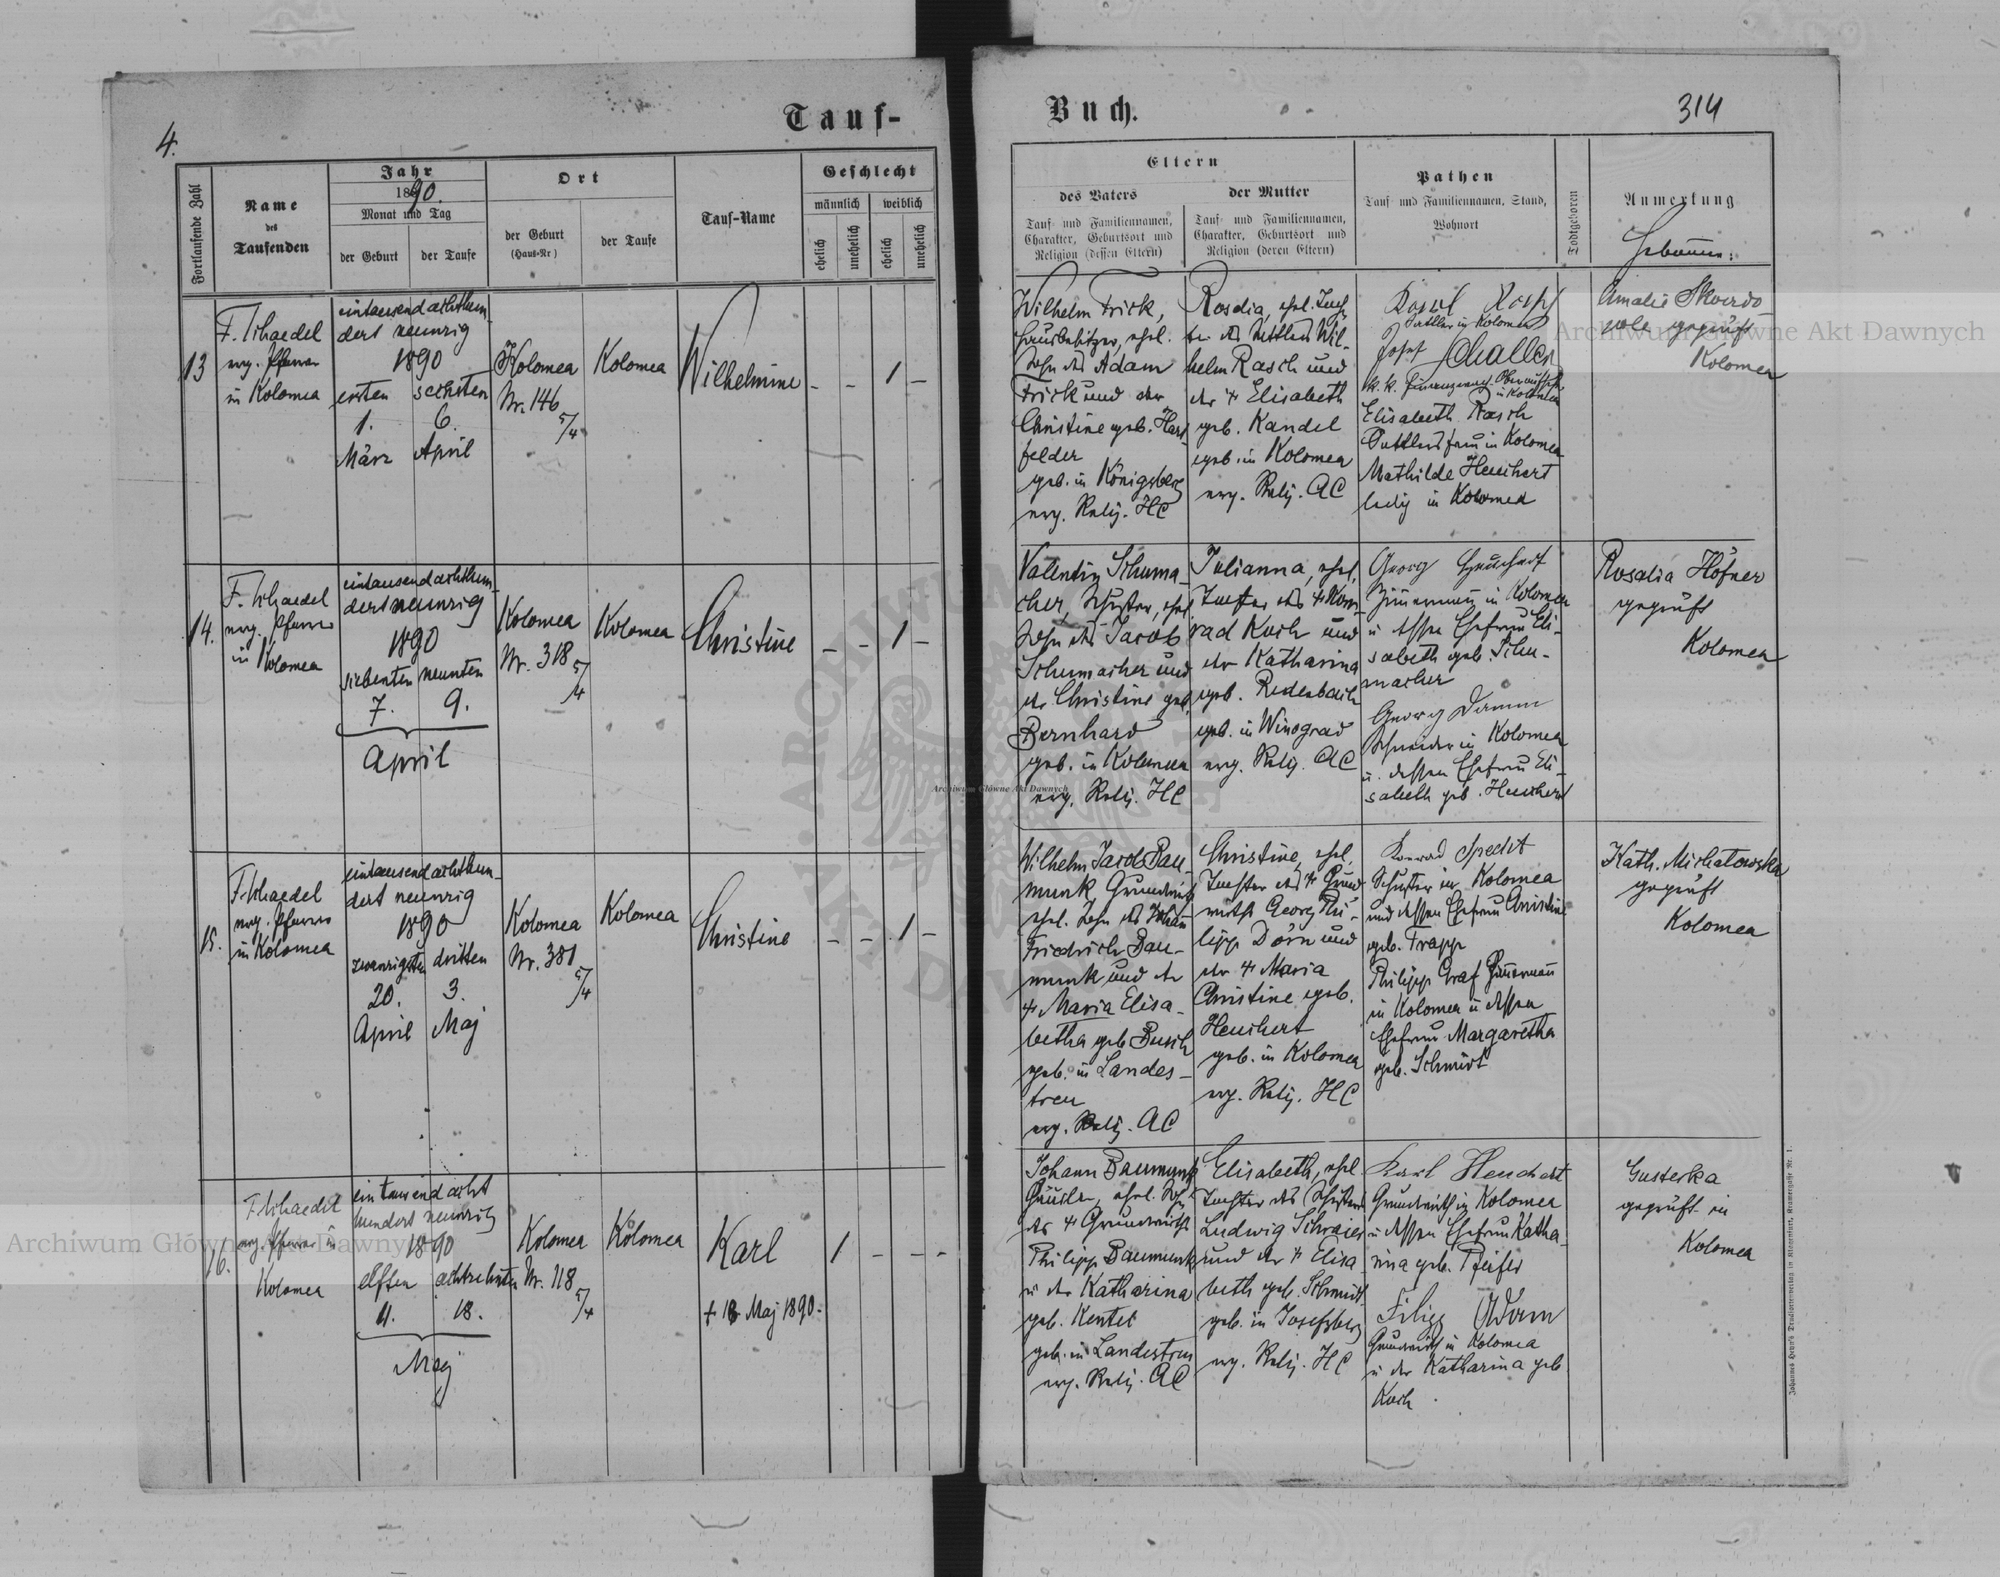 4.
Tauf-
Fortlaufende Zahl
Name
des
Taufenden
Jahr
1890.
Monat und Tag
der Geburt
der Taufe
Ort
der Geburt
(Haus-Nr)
der Taufe
Tauf-Name
Geschlecht
männlich
weiblich
ehelich
unehelich
ehelich
unehelich
13
F. Schaedel
evg. Pfarrer
in Kolomea
eintausend achthun-
dert neunzig
1890
ersten
sechsten
1.
6.
März
April
Kolomea
Nr. 146
5/4
Kolomea
Wilhelmine
- - 1 -
14.
F. Schaedel
evg. Pfarrer
in Kolomea
eintausend achthun-
dert neunzig
1890
siebenten
neunten
7.
9.
April
Kolomea
Nr. 318
5/4
Kolomea
Christine
- - 1 -
15.
F. Schaedel
evg. Pfarrer
in Kolomea
eintausend achthun-
dert neunzig
1890
zwanzigsten
dritten
20.
3.
April
Maj
Kolomea
Nr. 381
5/4
Kolomea
Christine
- - 1 -
16.
F. Schaedel
evg. Pfarrer in
Kolomea
eintausend acht
hundert neunzig
1890
elften
achtzehnten
11.
18.
Maj
Kolomea
Nr. 118
5/4
Kolomea
Karl
+ 18 Maj 1890.
1 - - -
Buch.
314
Eltern
des Vaters
Tauf- und Familiennamen,
Charakter, Geburtsort und
Religion (dessen Eltern)
der Mutter
Tauf- und Familiennamen,
Charakter, Geburtsort und
Religion (deren Eltern)
Pathen
Tauf- und Familiennamen, Stand,
Wohnort
Todtgeboren
Anmerkung
Hebamme:
Wilhelm Frick,
Hausbesitzer, ehel.
Sohn des Adam
Frick und der
Christine geb. Harf
felder
geb. in Königsberg
evg. Relig. HC
Rosalia, ehel. Toch
ter des Sattlers Wil-
helm Rasch und
der + Elisabeth
geb. Kandel
geb. in Kolomea
evg. Relig. AC
Sattler in Kolomea
Josef Schaller
k. k. Finanzwach Oberaufseher
in Kolomea
Elisabeth Rasch
Sattlersfrau in Kolomea
Mathilde Heuchert
ledig in Kolomea
Amalie
geprüft
Kolomea
Valentin Schuma-
cher, Schuster, ehel.
Sohn des Jacob
Schumacher und
der Christine geb.
Bernhard
geb. in Kolomea
evg. Relig. HC
Julianna, ehel.
Tochter des + Kon-
rad Koch und
der Katharina
geb. Redenbach
geb. in Winograd
evg. Relig. AC
Georg Heuchert
Zimmermann in Kolomea
u dessen Ehefrau Eli-
sabeth geb. Schu-
macher
Georg Damm
Schneider in Kolomea
u. dessen Ehefrau Eli-
sabeth geb. Heuchert
Rosalia Höfner
geprüft
Kolomea
Wilhelm Jacob Bau-
munk Grundwirth
ehel. Sohn des Johann
Friedrich Bau-
munk und der
+ Maria Elisa-
betha geb Busch
geb. in Landes-
treu
evg. Relig. AC
Christine, ehel.
Tochter des + Grund
wirths Georg Phi-
lipp Dörn und
der + Maria
Christine geb.
Heuchert
geb. in Kolomea
evg. Relig. HC
Konrad Specht
Schuster in Kolomea
und dessen Ehefrau Christine
geb. Trapp
Philipp Graf Zimmermann
in Kolomea u dessen
Ehefrau Margaretha
geb. Schmidt
Kath. Michatowska
geprüft
Kolomea
Johann Baumunk
Häusler, ehel. Sohn
des + Grundwirths
Philipp Baumunk
u der Katharina
geb. Kentel
geb. in Landestreu
evg. Relig. AC
Elisabeth, ehel.
Tochter des Schusters
Ludwig Schwaier
und der + Elisa
beth geb. Schmidt
geb. in Josefsberg
evg. Relig. HC
Karl Heuchert
Grundwirth in Kolomea
u dessen Ehefrau Katha-
rina geb. Pfeifer
Filipp Adam
Grundwirth in Kolomea
u der Katharina geb.
Koch
Gusterka
geprüft in
Kolomea
Archiwum Główne Akt Dawnych
Archiwum Główne Akt Dawnych
Archiwum Główne Akt Dawnych